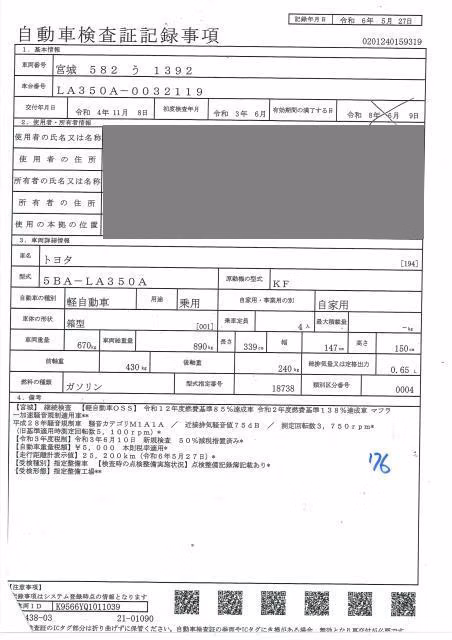 記録年月日 令和 6年 5月 27日
自動車検査証記録事項
0201240159319
1. 基本情報
車両番号 宮城 582 う 1392
車台番号 LA350A-0032119
交付年月日 令和 4年11月 8日 初度検査年月 令和 3年 6月 有効期間の満了する日 令和 8年 6月 9日
2. 使用者・所有者情報
使用者の氏名又は名称
使用者の住所
所有者の氏名又は名称
所有者の住所
使用の本拠の位置
3. 車両詳細情報
車名 トヨタ [194]
型式 5BA-LA350A 原動機の型式 KF
自動車の種別 軽自動車 用途 乗用 自家用・事業用の別 自家用
車体の形状 箱型 [001] 乗車定員 4人 最大積載量 -kg
車両重量 670kg 車両総重量 890kg 長さ 339cm 幅 147cm 高さ 150cm
前軸重 430kg 後軸重 240kg 総排気量又は定格出力 0.65 L
燃料の種類 ガソリン 型式指定番号 18738 類別区分番号 0004
4. 備考
【宮城】 継続検査 【軽自動車OSS】 令和12年度燃費基準85%達成車 令和2年度燃費基準138%達成車 マフラ
ー加速騒音規制適用車**
平成28年騒音規制車 騒音カテゴリM1A1A ／ 近接排気騒音値75dB ／ 測定回転数3,750rpm*
(旧基準適用時測定回転数5,100rpm)*
【令和3年度税制】令和3年6月10日 新規検査 50%減税措置済み*
【自動車重量税額】¥5,000 本則税率適用*
【走行距離計表示値】25,200km（令和6年5月27日）*
【受検種別】指定整備車 【検査時の点検整備実施状況】点検整備記録簿記載あり*
【受検形態】指定整備工場**
176
【注意事項】
記録事項はシステム登録時点の情報となります
車両ID K9566YQ1011039
438-03 21-01090